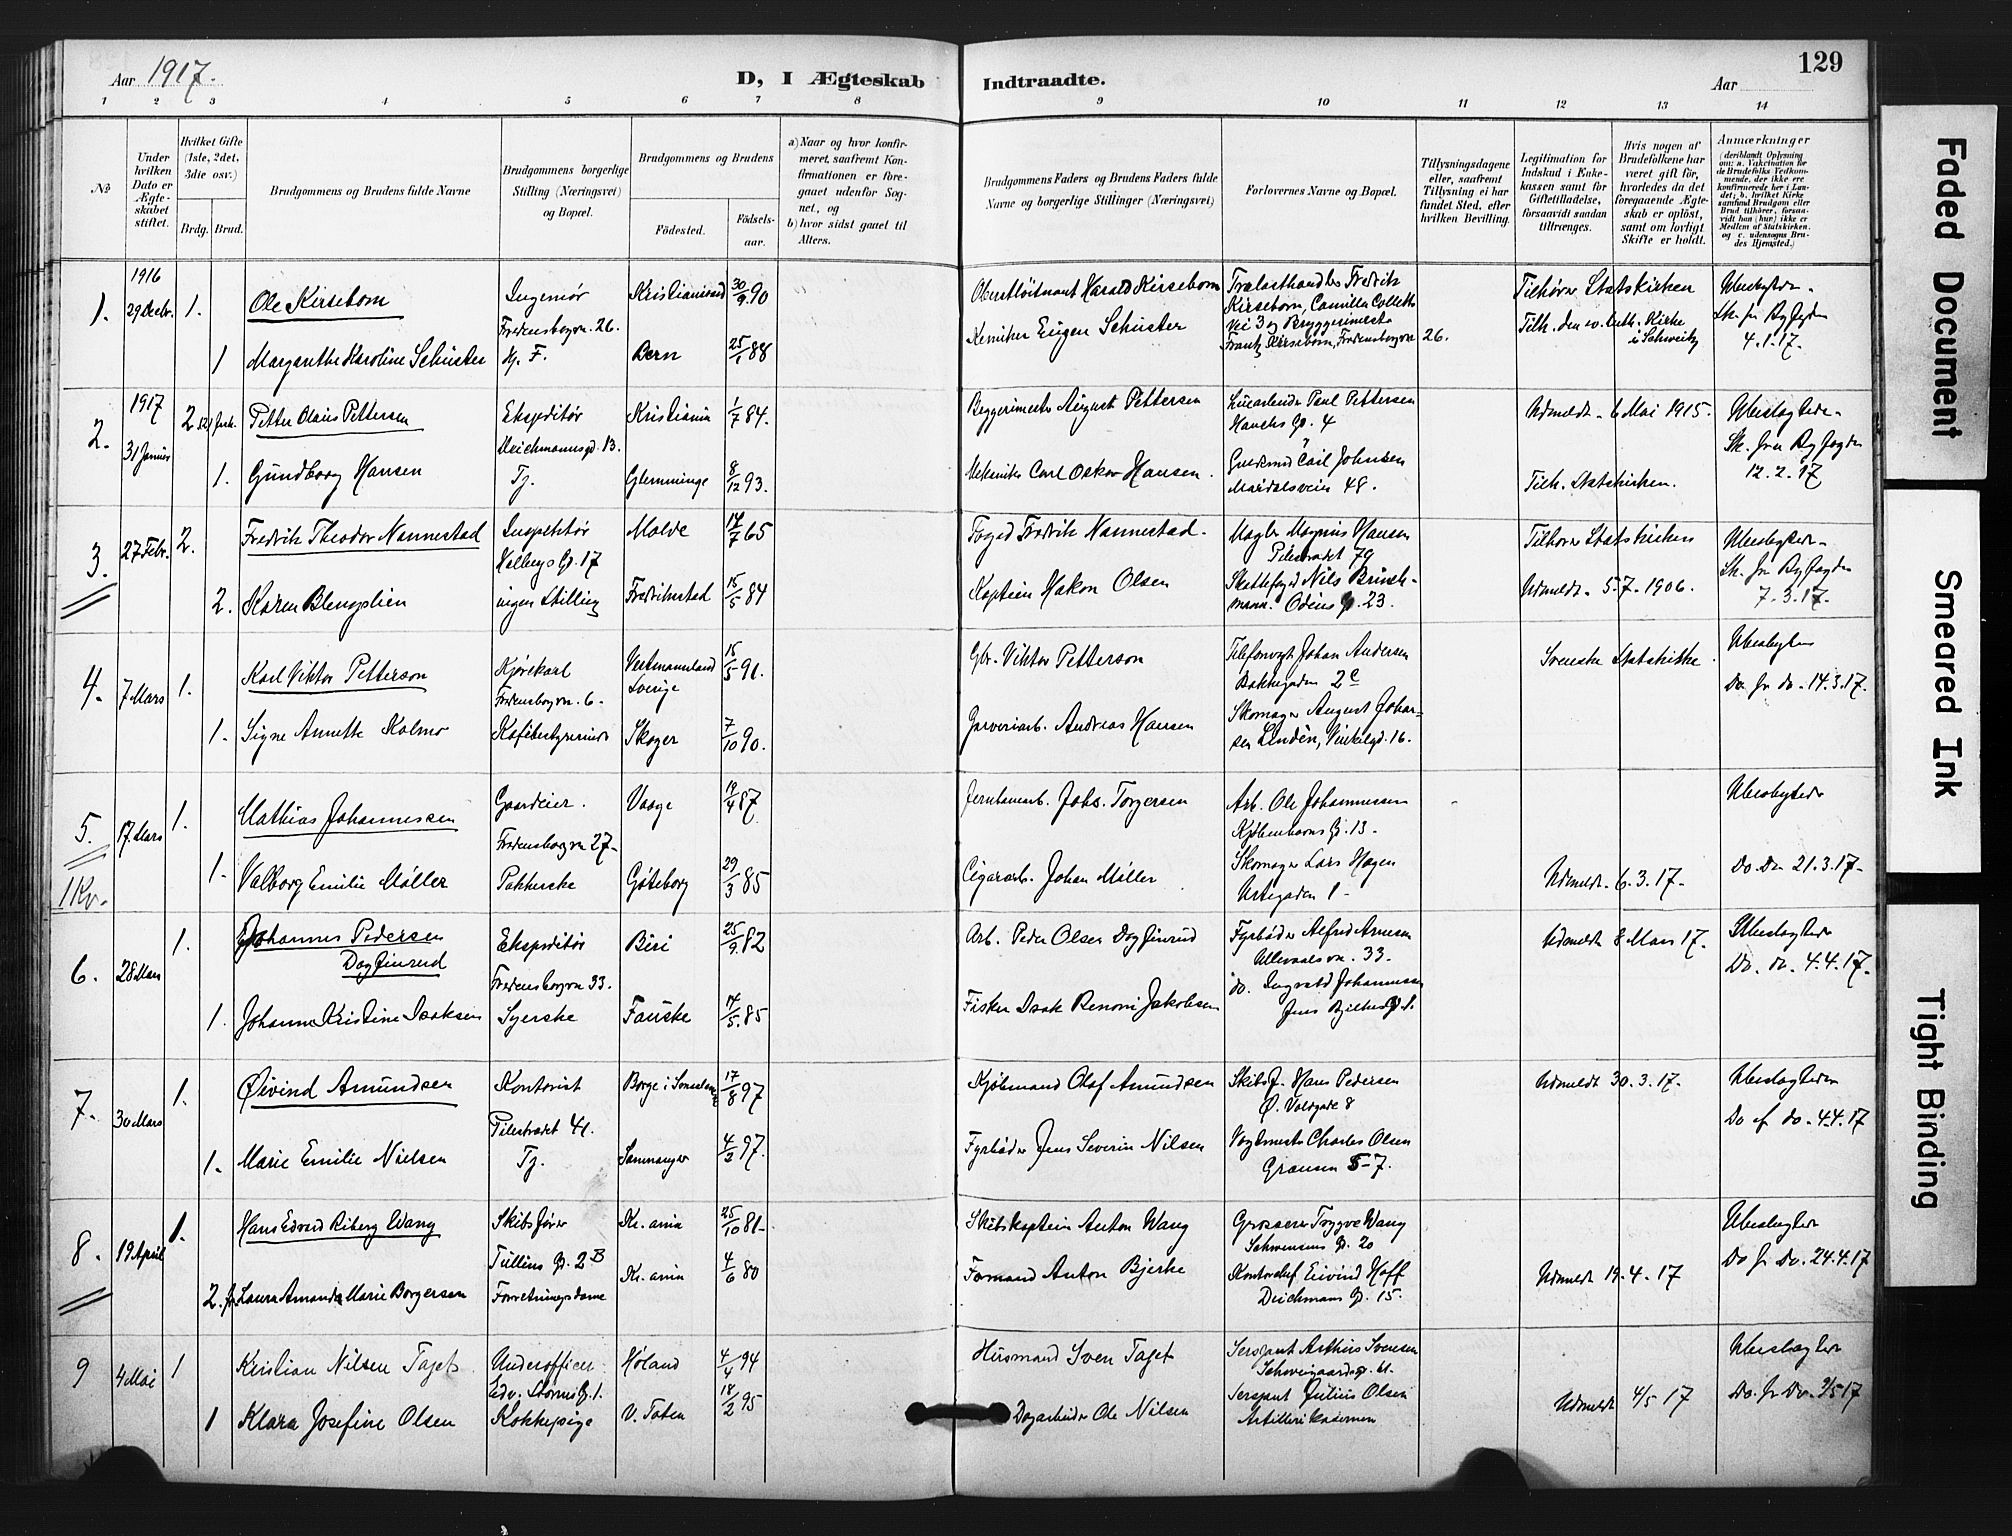 Aar 1917.
D, I Ægteskab
Indtraadte.
Aar
129
1 2 3 4 5 6 7 8 9 10 11 12 13 14
No
Under hvilken Dato er Ægteskabet stiftet.
Hvilket Gifte (1ste, 2det, 3die osv.)
Brdg. Brud.
Brudgommens og Brudens fulde Navne
Brudgommens borgerlige Stilling (Næringsvei) og Bopæl.
Brudgommens og Brudens
Födested.
Födselsaar.
a) Naar og hvor konfirmeret, saafremt Konfirmationen er foregaaet udenfor Sognet, og
b) hvor sidst gaaet til Alters.
Brudgommens Faders og Brudens Faders fulde Navne og borgerlige Stillinger (Næringsvei)
Forlovernes Navne og Bopæl.
Tillysningsdagene eller, saafremt Tillysning ei har fundet Sted, efter hvilken Bevilling.
Legitimation for Indskud i Enkekassen samt for Giftetilladelse, forsaavidt saadan tiltrænges.
Hvis nogen af Brudefolkene har været gift før, hvorledes da det foregaaende Ægteskab er opløst, samt om lovligt Skifte er holdt.
Anmærkninger
(deriblandt Oplysning om: a. Vakcination for de Brudefolks Vedkommende, der ikke ere konfirmerede her i Landet; b. hvilket Kirkesamfund Brudgom eller Brud tilhörer, forsaavidt han (hun) ikke er Medlem af Statskirken. og c. udensogns Brudes Hjemsted.)
1.
1916
29 Decbr.
1.
Ole Kirsebom
Ingeniør
Fredensborgvn. 26.
Kristiansand
30/9 90
Oberstløitnant Harald Kirsebom
Trælasthandler Fredrik
Kirsebom, Camilla Colletts
Vei 3 og Bryggerimester
Frantz Kirsebom, Fredensborgvn 26.
Tilhører Statskirken
Ubeslagtede -
Sk. fra Byfogden
4.1.17.
1
Margarethe Karoline Schuster
Hj. F.
Bern
25/1 88
Kemiker Eugen Schuster
Tilh. den ev. luth. Kirke
i Schweitz
2.
1917
31 Januar
2
Petter Olaus Pettersen
Ekspeditør
Deichmannsgd. 13.
Kristiania
1/7 84.
Bryggerimester August Pettersen
Paul Pettersen
Hauchs Gd. 4
Udmeldt - 6 Mai 1915.
Ubeslagtede -
Sk. fra Byfogden
12.2.17
1.
Gundborg Hansen
Tj.
Glemminge
8/12 93.
Mekaniker Carl Oskar Hansen.
Guldsmed Carl Johnsen
Maridalsveien 48.
Tilh. Statskirken.
3.
27 Febr.
2.
Fredrik Theodor Nannestad
Inspektør
Holbergs Gd. 17
Molde
14/7 65
Foged Fredrik Nannestad.
Magnus Hansen
Pilestrædet 79
Tilhører Statskirken
Ubeslagtede -
Sk. fra Byfogden
7.3.17.
2.
Karen Blengslien
ingen Stilling
Fredrikstad
15/5 84
Kaptein Hakon Olsen
Skattefoged Nils Brinchmann.
Odins G. 23.
Udmeldt. 5.7.1906.
4.
7 Mars
1.
Karl Viktor Petterson
Kjørekarl
Fredensborgvn. 6.
Vestmanland
Sverige
15/5 91.
Gbr. Viktor Petterson
Telefonvagt Johan Andersen
Bakkegaden 2c
Svenske Statskirke.
Ubeslagtede
Do fr do. 14.3.17.
1.
Signe Annette Kolmo
Kafébestyrerinde
Skoger
7/10 90.
Garveriarb. Andreas Hansen
Skomager August Johansen
Lindén, Vinkelgd. 16.
5.
1 Kv.
17. Mars
1.
Mathias Johannessen
Gaardeier.
Fredensborgvn 27.
Vaage
14/4 87
Jernbanearb. Johs. Torgersen
Arb. Ole Johannessen
Kjøbenhavns G. 13.
Ubeslagtede
Do. Do 21.3.17.
1.
Valborg Emilie Møller
Pakkerske
Göteborg
29/3 85
Cigararb. Johan Müller
Skomager Lars Hagen
Urtegaden 1 -
Udmeldt. 6.3.17.
6.
28 Mars
1.
Johannes Pedersen
Dagfinrud
Ekspeditør
Fredensborgvn 33.
Biri
25/9 82
Arb. Peder Olsen Dagfinrud
Fyrbøder Alfred Arnesen
Ullevaalsvn. 33.
Udmeldt 8 Mars 17.
Ubeslagtede
Do. do. 4.4.17.
1.
Johanne Kristine Isaksen
Syerske
Fauske
14/5 85
Fisker Isak Benoni Jakobsen
do. Ingvald Johannessen
Jens Bjelkes G. 1.
7.
30 Mars
1.
Øivind Amundsen
Kontorist
Pilestrædet 41.
Borge i Smaalenene
17/8 97
Kjøbmand Olaf Amundsen
Skibsf. Hans Pedersen
Ø. Voldgade 8
Udmeldt 30.3.17.
Ubeslagtede
Do af do. 4.4.17
1.
Marie Emilie Nielsen
Tj.
4/3 97.
Fyrbøder Jens Severin Nilsen
Vogtmester Charles Olsen
Grænsen 5-7.
8.
19 April
1.
Hans Edvard Riberg Wang
Skibsfører
Tullins G. 2B
Kr.ania
25/10 81.
Skibskaptein Anton Wang
Grosserer Trygve Wang
Schwensens G. 20
Ubeslagtede
Do fr Do. 24.4.17
2.
Laura Amanda Marie Borgersen
Forretningsdame
Kr.ania
4/6 80
Formand Anton Bjerke
Kontorchef Eivind Hoff
Deichmans G. 15.
Udmeldt 19.4.17
9
4 Mai
1
Kristian Nilsen Taget
Underofficer
Edv. Storms G. 1.
Høland
4/4 94
Husmand Sven Taget
Sersjant Arthur Svensen
Schweigaardsg. 61.
Ubeslagtede
Do. fr Do. 9/5 17
1
Klara Josefine Olsen
Kokkepige
V. Toten
18/2 95
Dagarbeider Ole Nilsen
Sersjant Julius Olsen
Artillerikasernen
Udmeldt 4/5 17
Faded Document
Smeared Ink
Tight Binding